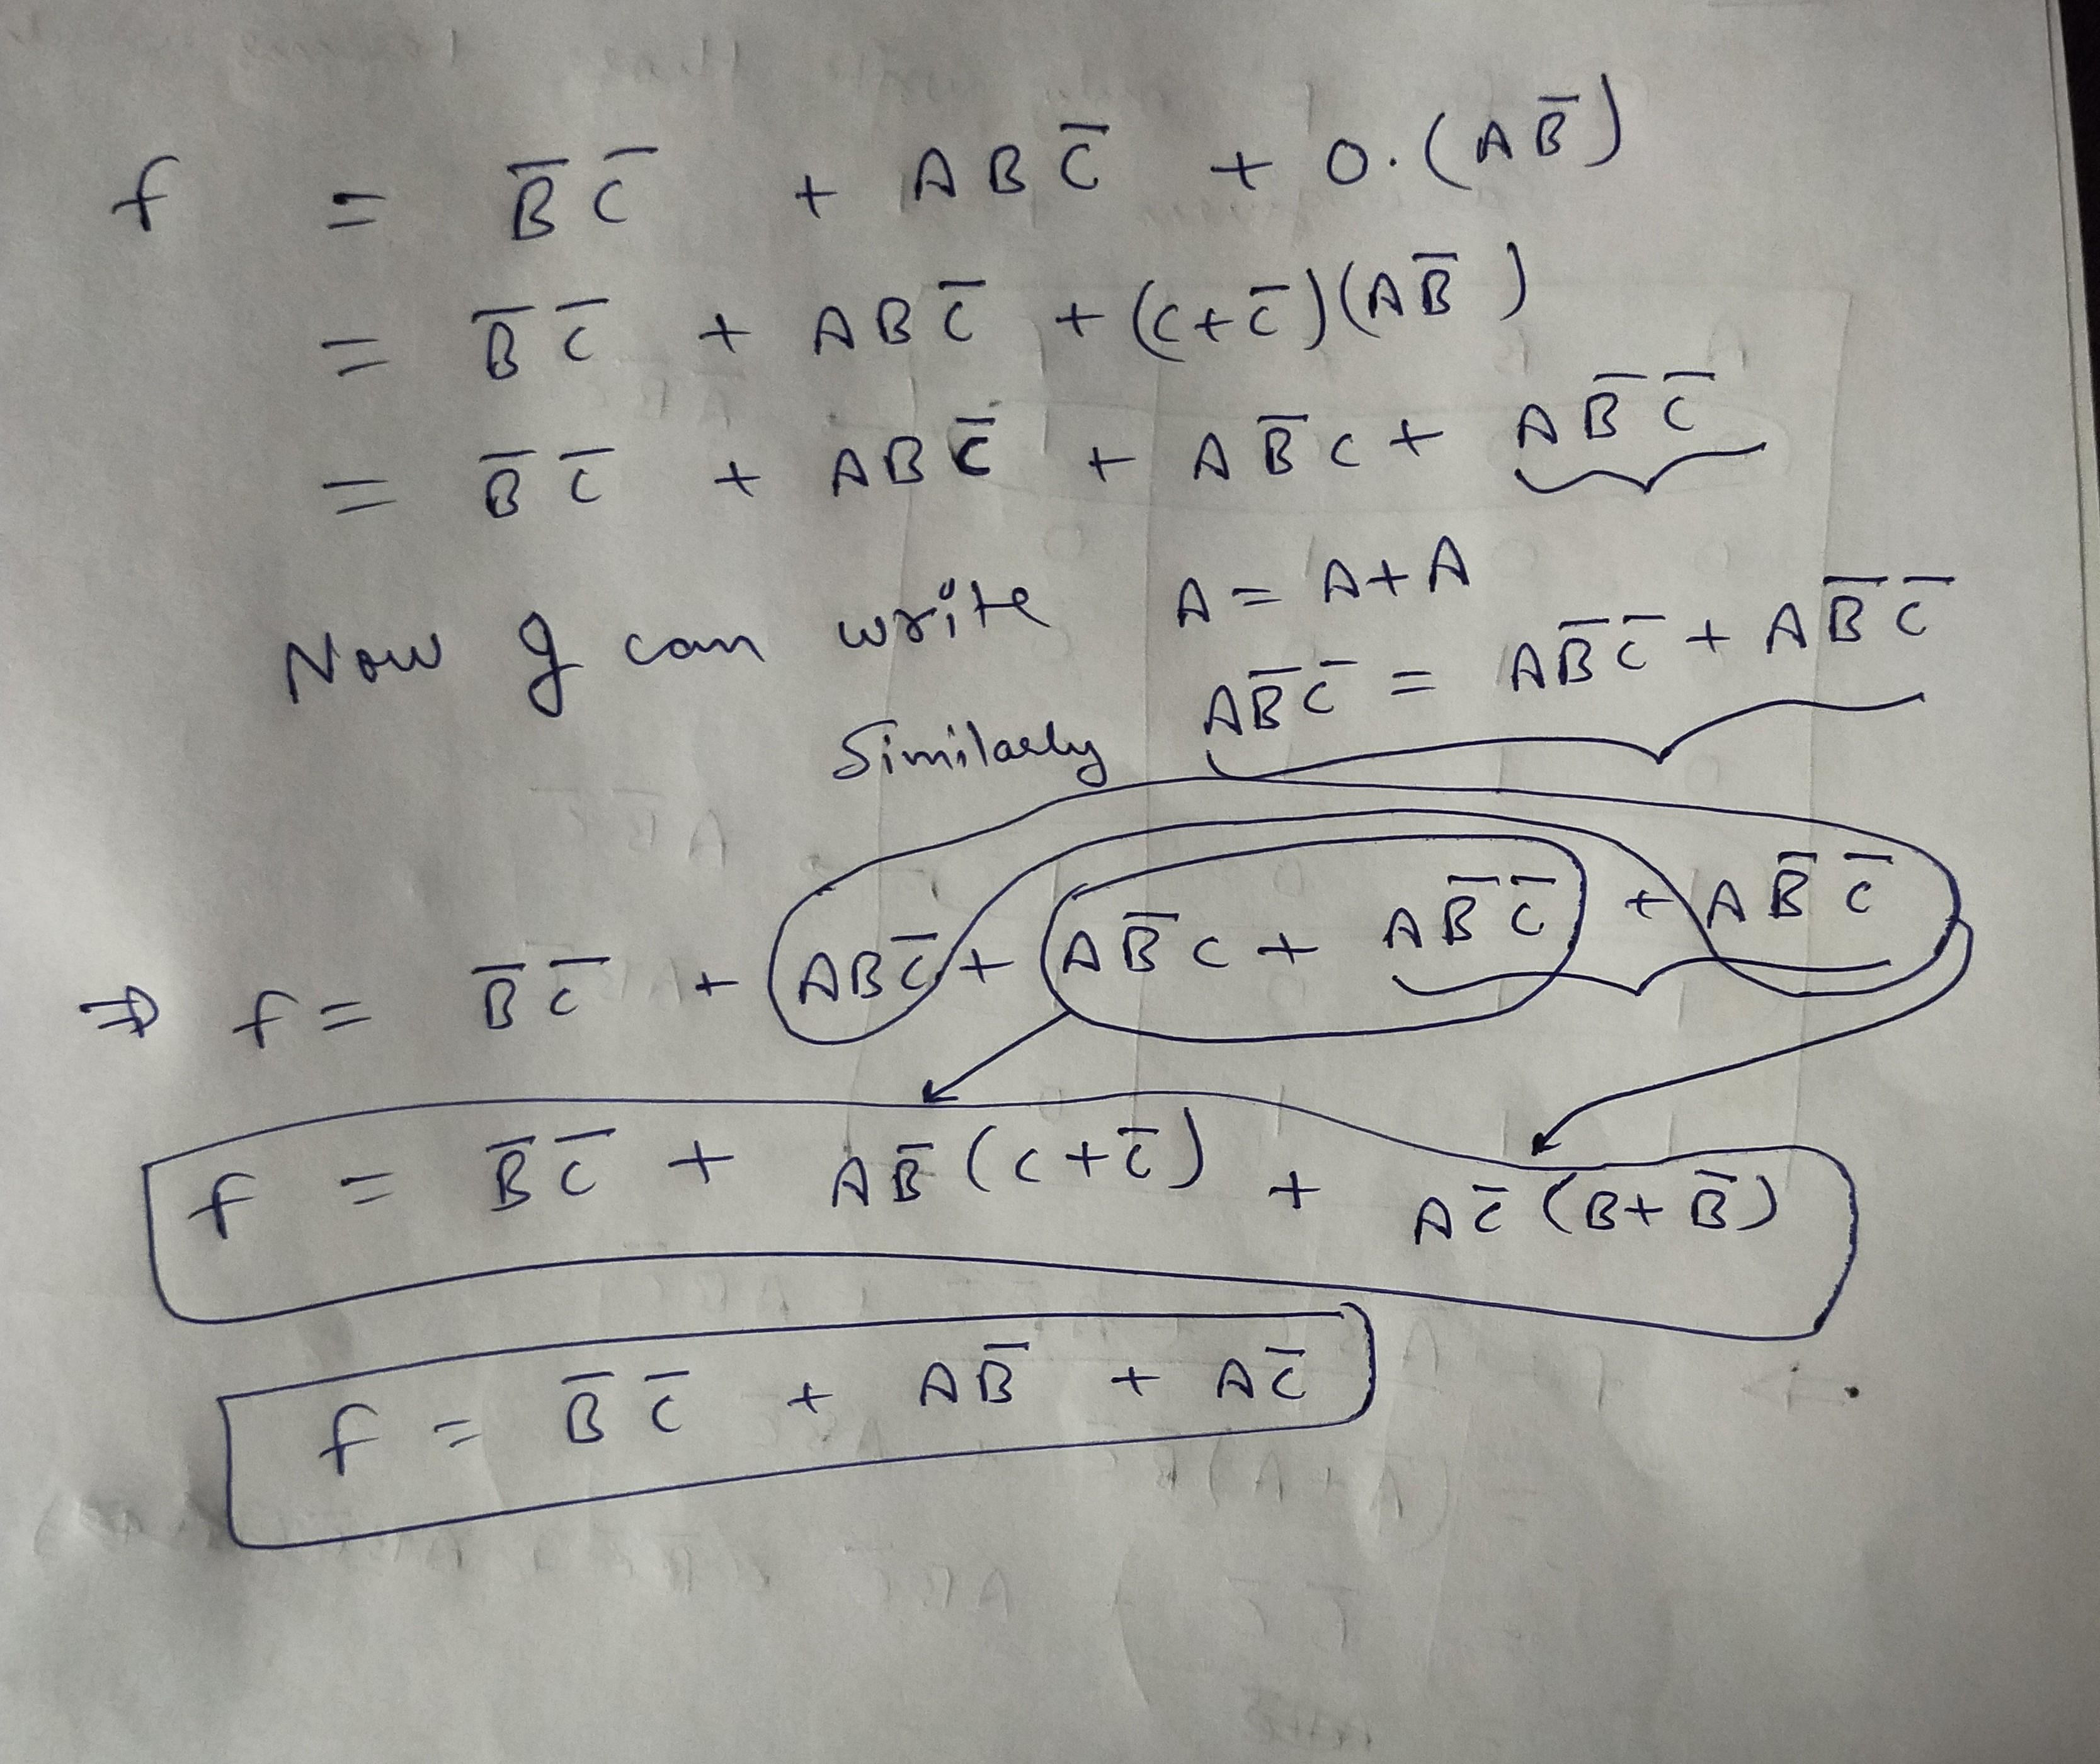 f = B̅ C̅ + A B C̅ + 0.(A B̅)
= B̅ C̅ + A B C̅ + (C+C̅)(A B̅)
= B̅ C̅ + A B C̅ + A B̅ C + A B̅ C̅
Now I can write A = A+A
Similarly A B̅ C̅ = A B̅ C̅ + A B̅ C̅
⇒ f = B̅ C̅ + A B C̅ + A B̅ C + A B̅ C̅ + A B̅ C̅
f = B̅ C̅ + A B̅ (C+C̅) + A C̅ (B+B̅)
f = B̅ C̅ + A B̅ + A C̅